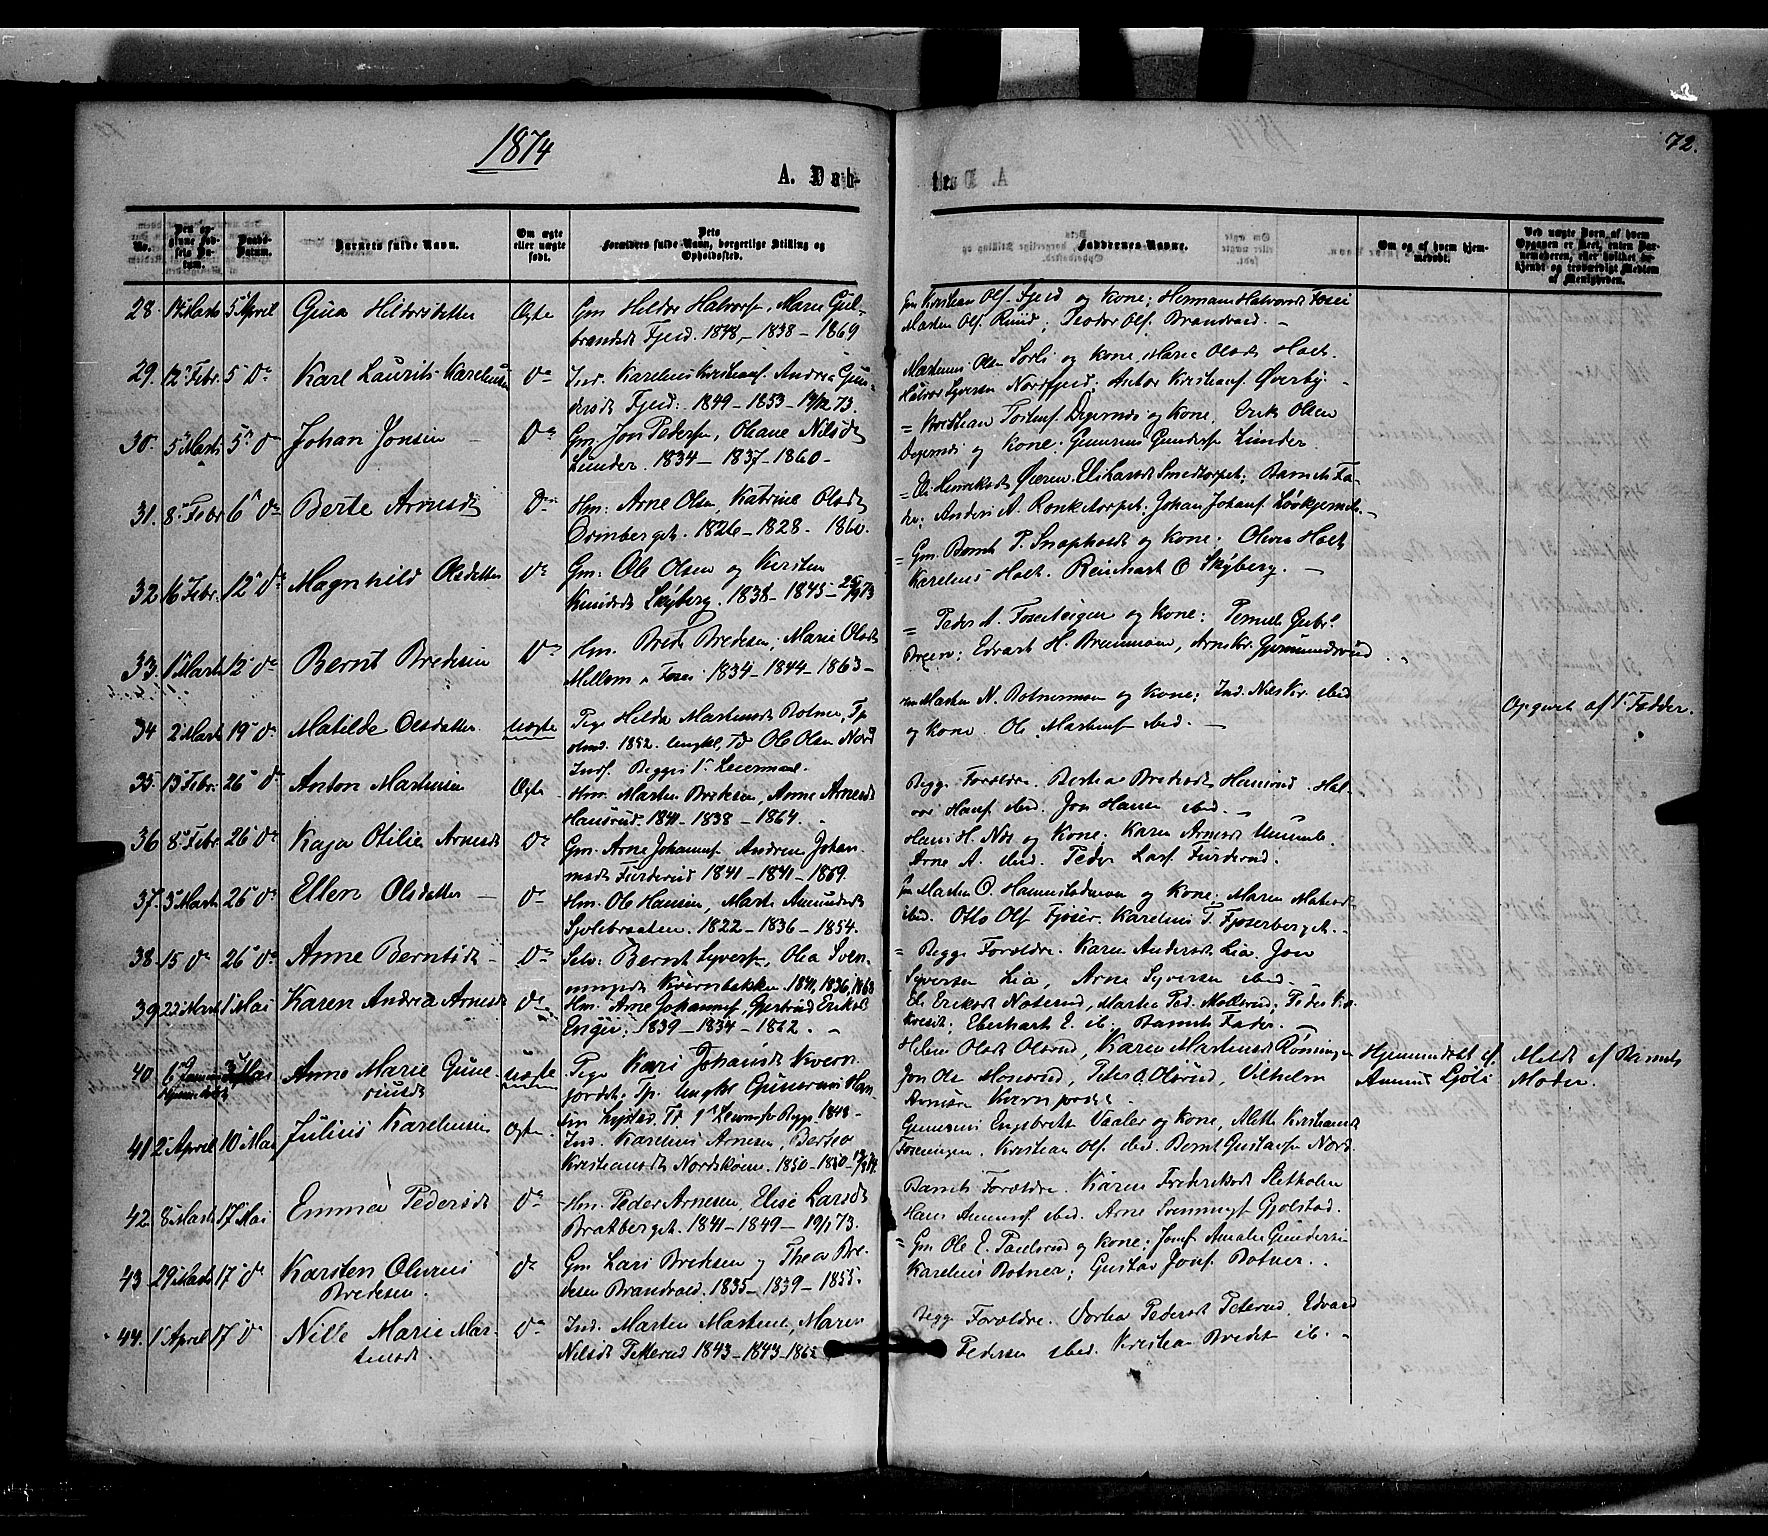 1874
72.
A. Døb-
te.
No.
Den opgivne Fødsels Datum.
Daabs-Datum.
Barnets fulde Navn.
Om ægte eller uægte født.
Dets Forældres fulde Navn, borgerlige Stilling og Opholdssted.
Faddernes Navne.
Om og af hvem hjemmedøbt.
Ved uægte Børn, af hvem Opgaven er skeet, enten Barnemoderen, eller hvilket bekjendt og troværdigt Medlem af Menigheden.
28 14 Marts 5 April Gina Hildorsdatter Ægte Gm Heldor Halvorsn, Marie Gul-
brandsd Fjeld. 1848, – 1838 – 1869
Gm Kristian Ols. Fjeld og Kone; Herman Halvorsd Fosei
Marten Ols. Ruud; Teodor Ols. Brandvold. –
29. 12 Febr. 5 Do Karl Laurits Karelius Do Ind. Karelius Kristians. Andrea Gun-
dersd Fjeld. 1849 – 1853 – 73.
Martinus Olsen Sorli og Kone, Marie Olsd Holt.
Halvor Syversen Nordfjeld; Anton Kristians. Øverby. –
30. 5 Marts 5 Do Johan Jonsen – Do Gm. Jon Peders., Oleane Nilsd
Lunder. 1834 – 1837 – 1860 –
= Kristian Tostens. Degernds og Kone. Erik Olsen
Degernds og Kone. Gunerius Gunders. Lunder
31. 8 Febr 6 Do Berte Arnesd Do Hm: Arne Olsen, Katrine Olsd
Ormberget. 1826 – 1828. 1860.
= Eli Henriksd Øieren. Eli Larsd Smedtorpet; Barnets Fa-
der; Anders A. Ronketorpet; Johan Johans.
32 16 Febr. 12 Do Magnhild Olsdatter Do Gm: Ole Olsen og Kersten
Knudsd Skyberg. 1838 – 1845 – 73
= Gm. Bernt P. Snapholdt og Kone: Olivia Holt
Karelius Holt. Reinhart O Skyberg. –
33. 1 Marts 12 Do Bernt Bredesen Do Hm. Brede Bredesen; Marie Olsd
Mellem Fosei 1834 – 1844 – 1863 –
= Peder A. Foseiteigen og Kone: Pernille Gulbr.
Braten; Edvart H. Brænmoen, Arne Kr. Gjermundsrud.
34 2 Marts 19 Do Matilde Olsdatter uægte Pige Helda Martinsd Botner, Fp
1852. Ungkl, Fp Ole Olsen Nord
Inds. Begges 1 Leiermaal.
Marten N. Botnermoen og Kone; Ind. Nils Kr. ibid
og Kone. Ole Martins. ibid. –
Opgivet af 1 Fadder.
35. 15 Febr. 26 Do Anton Martinsen Ægte Hm. Martin Bredesen, Anne Arnesd
Hansrud. 1841 – 1838 – 1864. –
Begge Forældre. Bertea Bredesd Hansrud. Hal-
vor Hans. ibid. Jon Hansen ibid. –
36 8 Febr. 26 Do Kaja Otilie Arnesd Do Gm. Arne Johanns. Andrea Johan
nesd Furderud 1841 – 1841 – 1869.
Hans H. Nøs og Kone. Karen Arnesd
Arne A. ibid. Peder Lars. Furderud.
37. 3 Marts 26 Do Ellen Olsdatter – Do Hm. Ole Hansen, Marte Amundsd
Sjolibraaten. 1822 – 1836 – 1854.
Gm Marten O. Hammerstadmoen og Kone; Maren
ibid. Otto Ols. Fjøser. Karelius T. Fjøserberget. –
38 15 Do 26 Do Anne Berntsd Do Selv: Bernt Syvers., Olea Sven-
ningsd Kvernbakken. 1841, 1836, 1863
= Begge Forældre. Karen Andersd Lia. Jon
Syversen Lia, Arne Syversen ibid –
39 22 Marts 1 Mai Karen Andrea Arnesd Do Hm. Arne Johanns., Gjertrud Eriksd
Enger: 1839 – 1834 – 1862. –
Eli Eriksd Noterud, Martea Ped. Mollerud; Peder Kr.
Eberhart E. ib. Barnets Fader. –
40 6 3 Mai Anne Marie Gune-
riusd uægte Pige Kari Johansd Kvern
jordet. Fp. Ungkl Gunerius Han
sen Lystad. Fp 1 Leiermaal Begge 1848 –
Helene Olsd Olsrud, Karen Martinsd Rønningen
Jon Ols. Monsrud, Peter O. Olsrud, Vilhelm
Kvernjordet.
Hjemmedøbt af
Amund Sjoli
Meldt af Barnets
Moder.
41 2 April 10 Mai Julius Karelinsen Ægte. Ind. Karelius Arnesen, Bertea
Kristiansd Nordskoien. 1850 – 1850 –
Gunerius Engebrets Vaaler og Kone, Mette Kristiansd
Foseiengen. Kristian Ols. ibid. Bernt Gustavs. Nord.
42. 8 Marts 17 Mai Emma Pedersd Do Hm. Peder Arnesen, Elise Larsd
Bratberget. 1841 – 1849 – 19/1 73.
Barnets Forældre. Karen Frederiksd Sletholen
Hans Amunds. ibid. Arne Svennings. Gjolstad.
43 29 Marts 17 Do Karsten Olinus
Bredesen. Do Gm Lars Bredesen og Thea Bre-
desen Brandvold. 1835 – 1839 – 1855.
= Gm Ole E. Paulsrud og Kone; Jomf Amalie Gundersen
Karelius Botner; Gustav Jons. Botner.
44. 1 April 17 Do Nille Marie Mar-
tinsd. Do Ind. Marten Martins, Maren
Nilsd Petterud 1843 – 1843 – 1865
Begge Forældre. Dortea Pedersd Peterud. Edvard
Pedersen ibid. Kristian Bredes. ib. –